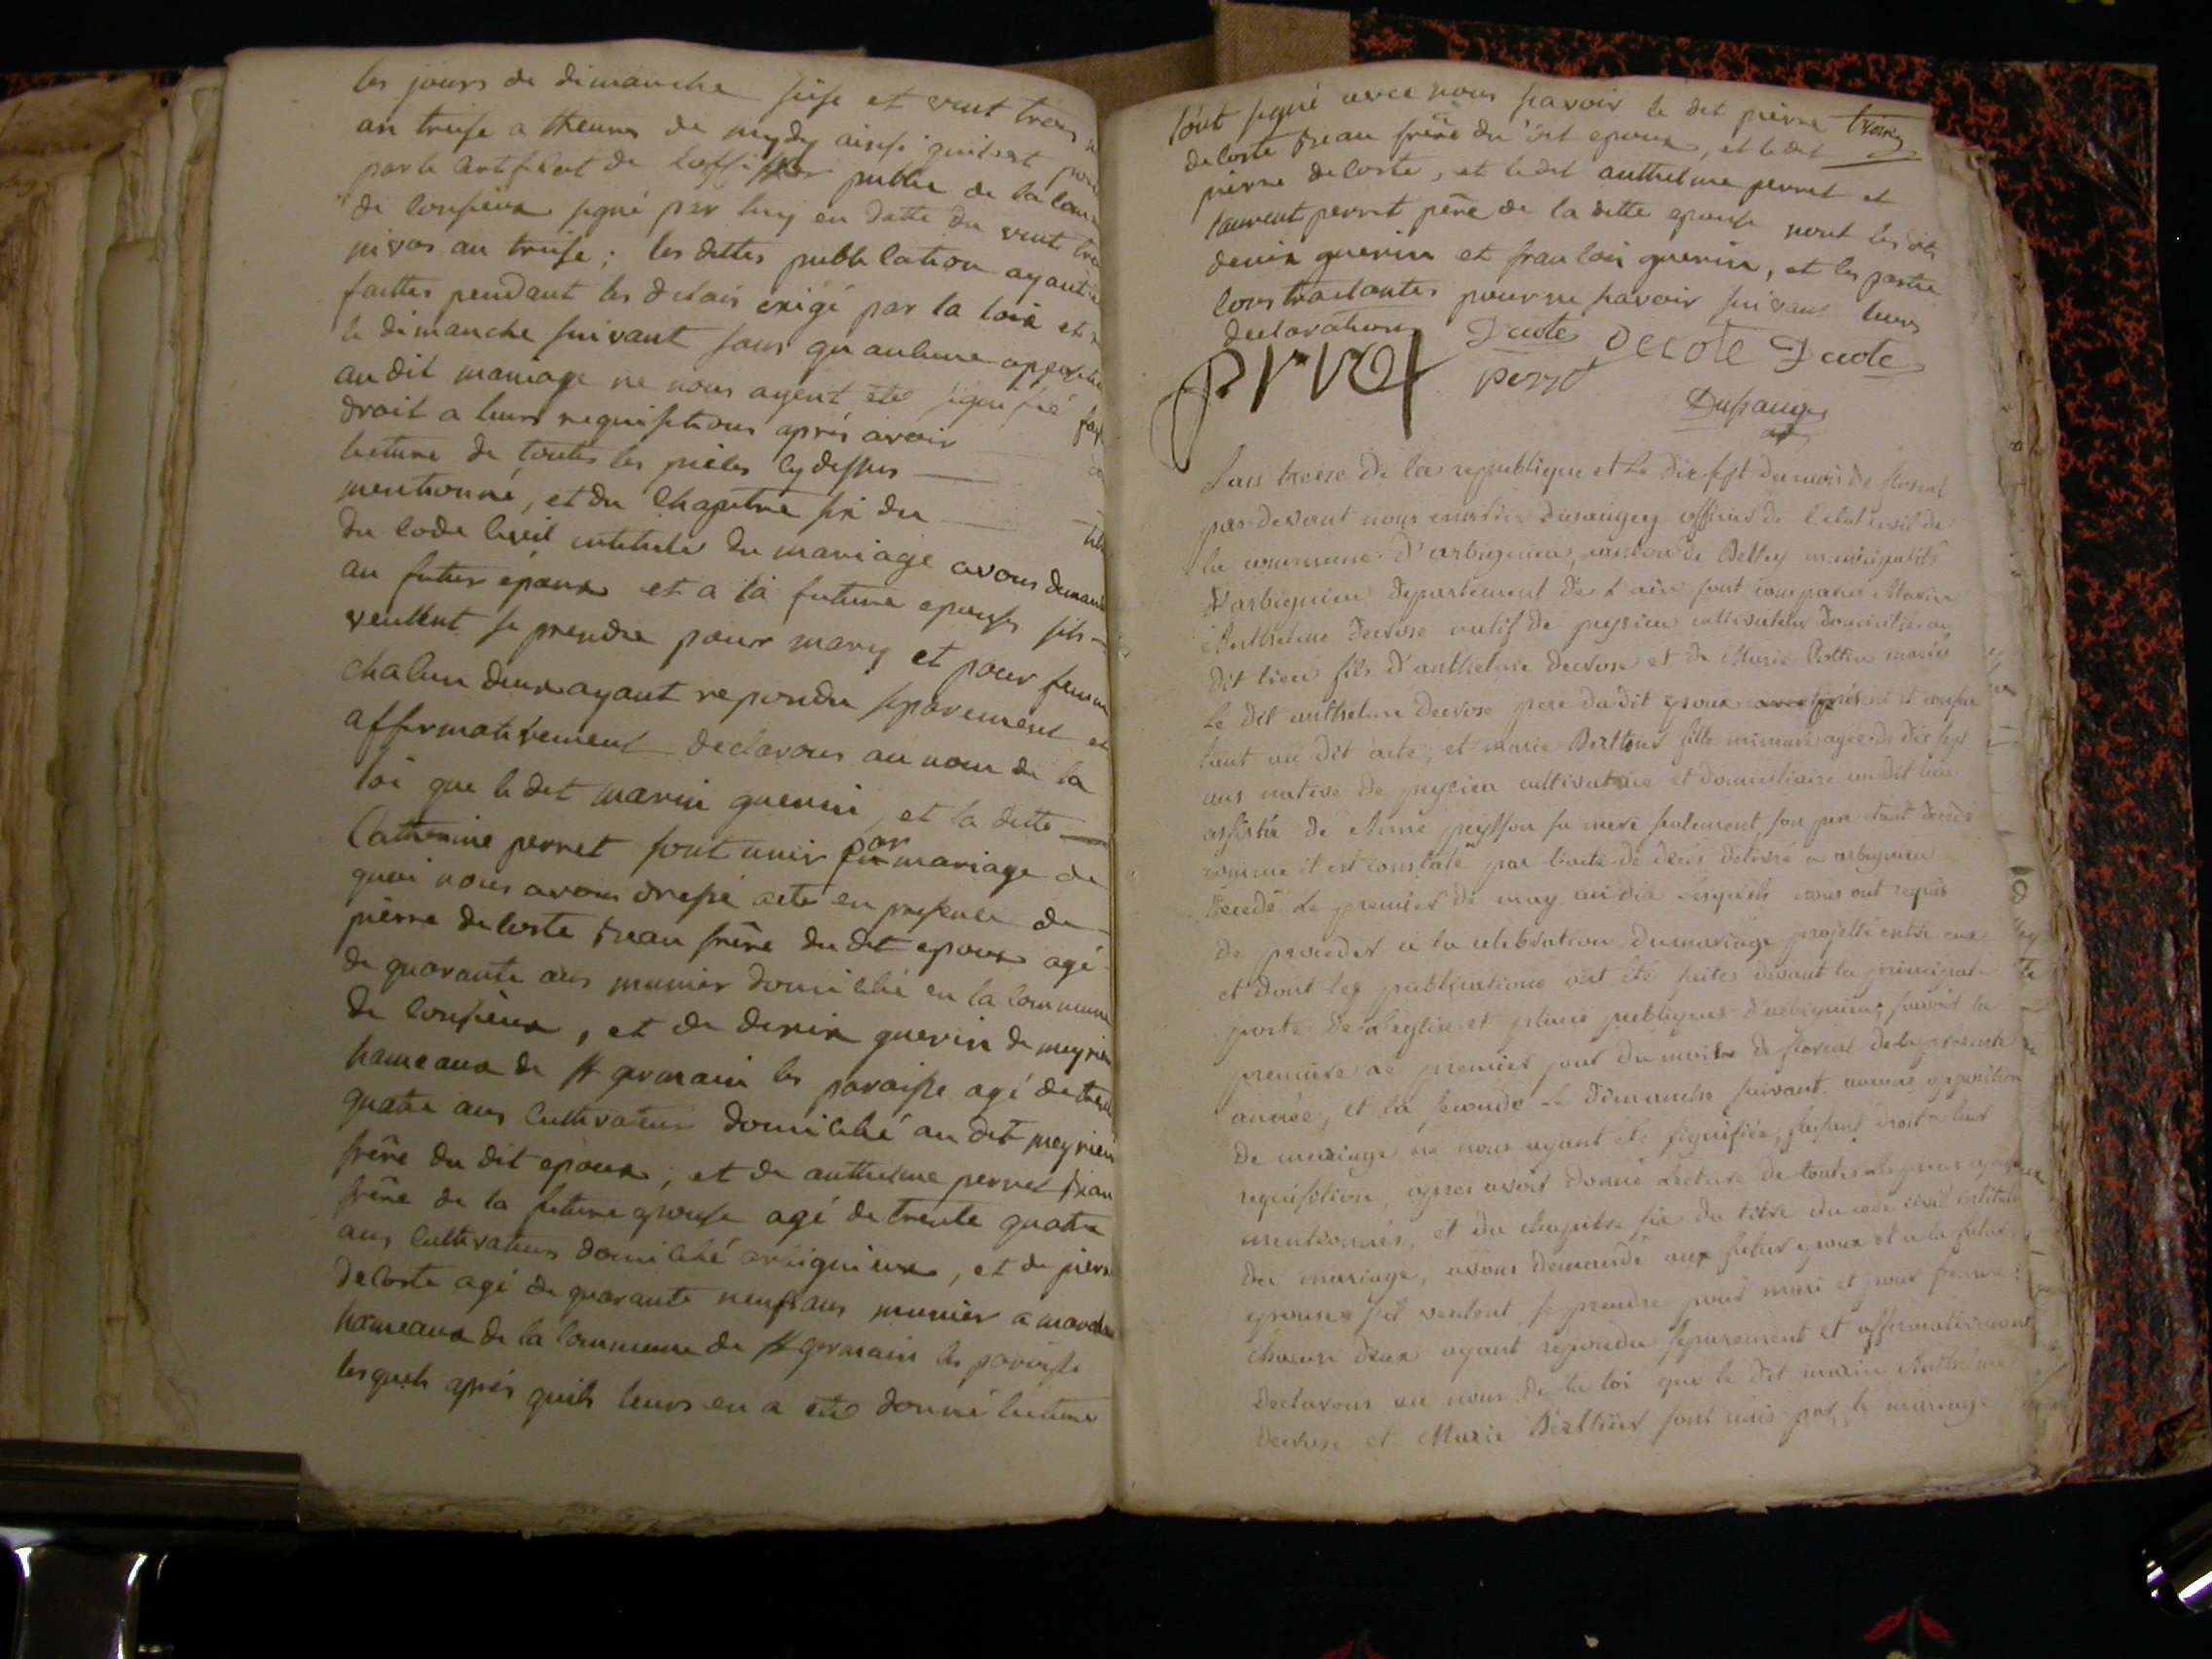 les jours de dimanche seise et vint trois
an treise a theures de mydy ainsi quil est
par le certificat de loffissier public de la
de consieux signé par luy en datte du vint
nivos an treise; les dittes publication ayant
faittes pendant les delais exigé par la loix et
le dimanche suivant sans qu aucune opposition
au dit mariage ne nous ayent été signifié
droit a leurs requisitions aprés avoir
lecture de toutes les pieces cy dessus
mentionné, et du chapitre six du
du code civil intitule du mariage avons demandé
au futur epoux et a la future epouse sils
veullent se prendre pour mary et pour femme
chacun deux ayant repondu separement et
affirmativement declarons au nom de la
loi que le dit marin guerin, et la ditte
Catherine perret sont unir par mariage de
quoi nous avons dressé acte en presence de
pierre decoste beau frêre du dit epoux agé
de quarante ans munier domicilié en la commune
de consieux, et de denix guerin de meyrieu
hameaux de st germain les paroisse agé de trente
quatre ans cultivateur domicilié au dit meyrieu
frêre du dit epoux; et de anthelme perret
frêre de la future epouse agé de trente quatre
ans cultivateur domicilié arbignieux, et de pierre
decoste agé de quarante neuf ans munier a
hameaux de la commune de st germain les paroisse
lesquels aprés quils leurs en a été donné lecture
tout signé avec nous savoir le dit pierre
decoste beau frêre du dit epoux, et le dit
pierre decoste, et le dit anthelme perret et
laurent perret pêre de la ditte epouse nont les dits
denix guerin et francois guerin, et les partie
contractantes pour ne savoir suivant leurs
declarations
Decote Decote
perret
Dusaugey
Lan treise de la republique et le dix sept du mois de floreal
par devant nous Dusaugey officier de l'etat civil de
la commune d'arbignieu, canton de Belley municipalité
d'arbignieu departement de l'ain sont comparus Marin
Anthelme natif de peysieu cultivateur domicilié au
dit lieu fils d'anthelme et de Marie mariés
le dit anthelme pere du dit epoux
au dit acte; et marie Berthier fille mineure agée de dix sept
ans native de peysieu cultivatrice et domiciliaire au dit lieu
assistée de sa mere seulement son pere etant decedé
comme il est constaté par l'acte de decés delivré a arbignieu
decedé le premier de may an dix lesquels nous ont requis
de proceder a la celebration du mariage projetté entre eux
et dont les publications ont été faites devant la principale
porte de l'eglise et place publique d'arbignieu; savoir la
premiere le premier jour du mois de floreal de la presente
année, et la seconde le dimanche suivant. aucune opposition
de mariage ne nous ayant été signifiée, faisant droit a leur
requisition, apres avoir donné lecture de toutes les pieces
mentionnés, et du chapitre six du titre du code civil intitulé
du mariage, avons demandé aux futur epoux et a la future
epouse s'il veulent se prendre pour mari et pour femme;
chacun deux ayant repondu separement et affirmativement
declarons au nom de la loi que le dit marin Anthelme
et Marie Berthier sont unis par le mariage